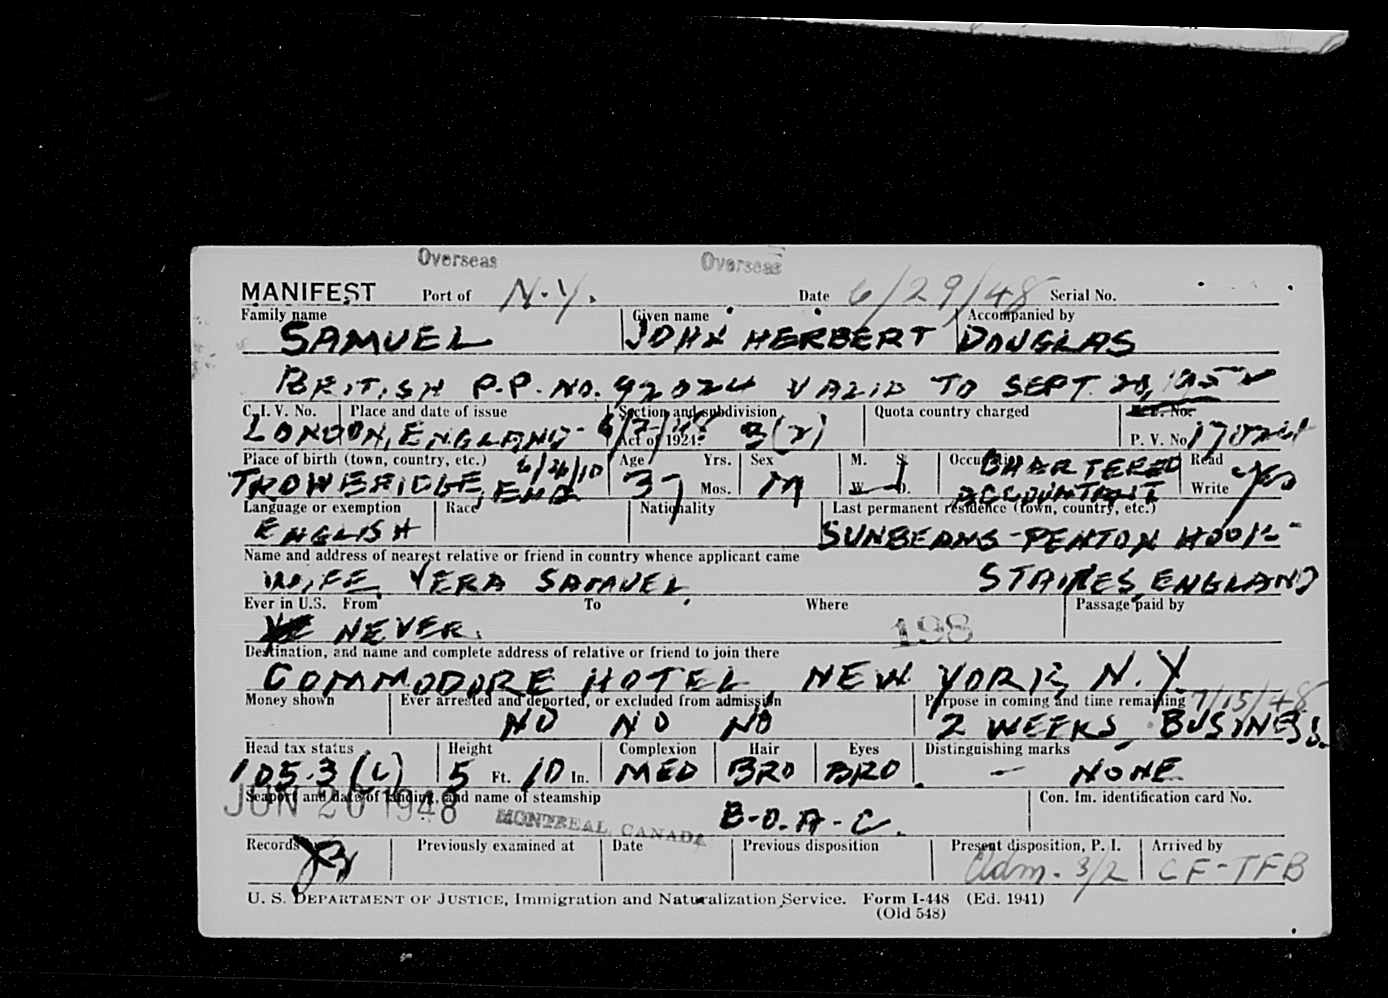 Overseas Overseas
MANIFEST Port of N.Y. Date 6/29/48 Serial No.
Family name Given name Accompanied by
SAMUEL JOHN HERBERT DOUGLAS
BRITISH P.P. NO. 92024 VALID TO SEPT. 28, 1952
C. I. V. No. Place and date of issue Section and subdivision Quota country charged
LONDON, ENGLAND - Act of 1924: 3(2) P. V. No.
Place of birth (town, country, etc.) 6/4/10 Age Yrs. Sex M. S. Occupation CHARTERED Read
TROWBRIDGE, ENG 37 Mos. M W. D. ACCOUNTANT Write yes
Language or exemption Race Nationality Last permanent residence (town, country, etc.)
ENGLISH SUNBEAMS - PENTON HOOK -
Name and address of nearest relative or friend in country whence applicant came
WIFE. VERA SAMUEL. STAINES, ENGLAND
Ever in U.S. From To Where Passage paid by
NEVER. 198
Destination, and name and complete address of relative or friend to join there
COMMODORE HOTEL NEW YORK, N.Y.
Money shown Ever arrested and deported, or excluded from admission Purpose in coming and time remaining 7/15/48
NO NO NO 2 WEEKS, BUSINESS.
Head tax status Height Complexion Hair Eyes Distinguishing marks
105.3 (c) 5 Ft. 10 In. MED BRO BRO. - NONE
Seaport and date of landing, and name of steamship Con. Im. identification card No.
JUN 20 1948 MONTREAL, CANADA B.O.A.C.
Records Previously examined at Date Previous disposition Present disposition, P. I. Arrived by
Adm. 3/2 CF-TFB
U. S. DEPARTMENT OF JUSTICE, Immigration and Naturalization Service. Form I-448 (Ed. 1941)
(Old 548)